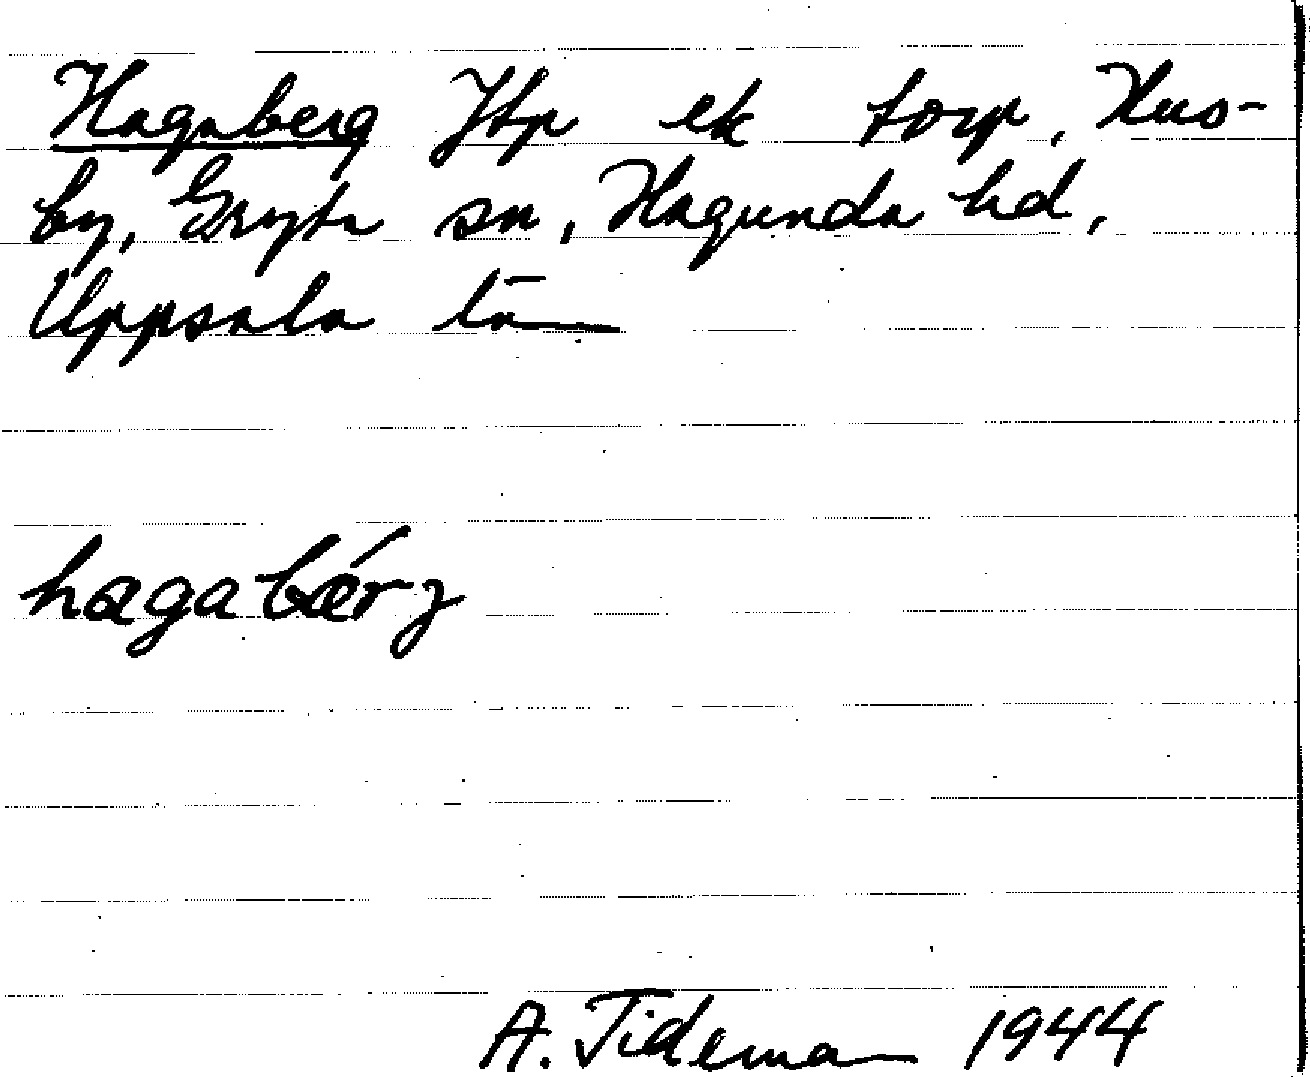 Hagaberg Jbp ek torp, Hus-
by, Gryta sn, Hagunda hd,
Uppsala län
hagabárg
A. Tideman 1944